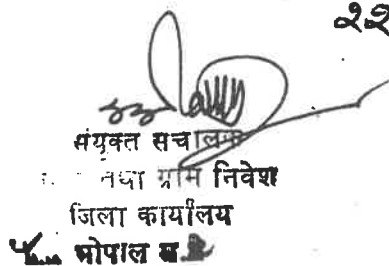 २२
संयुक्त सचालक
तथा ग्राम निवेश
जिला कार्यालय
भोपाल